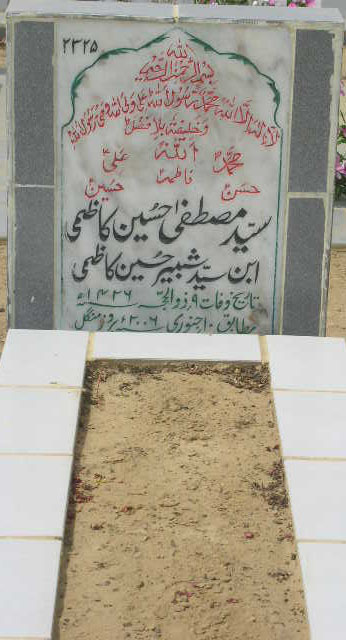 ۲۳۲۵
بسم اللہ الرحمن الرحیم
لا الہ الا اللہ محمد رسول اللہ علی ولی اللہ وصی رسول اللہ
و خلیفتہ بلا فصل
محمدؐ اللہ علیؑ
فاطمہؑ
حسنؑ حسینؑ
سید مصطفیٰ حسین کاظمی
ابن سید شبیر حسین کاظمی
تاریخ وفات ۹ ذوالحجہ ۱۴۲۶ھ
مطابق ۱۰ جنوری ۲۰۰۶ء بروز منگل